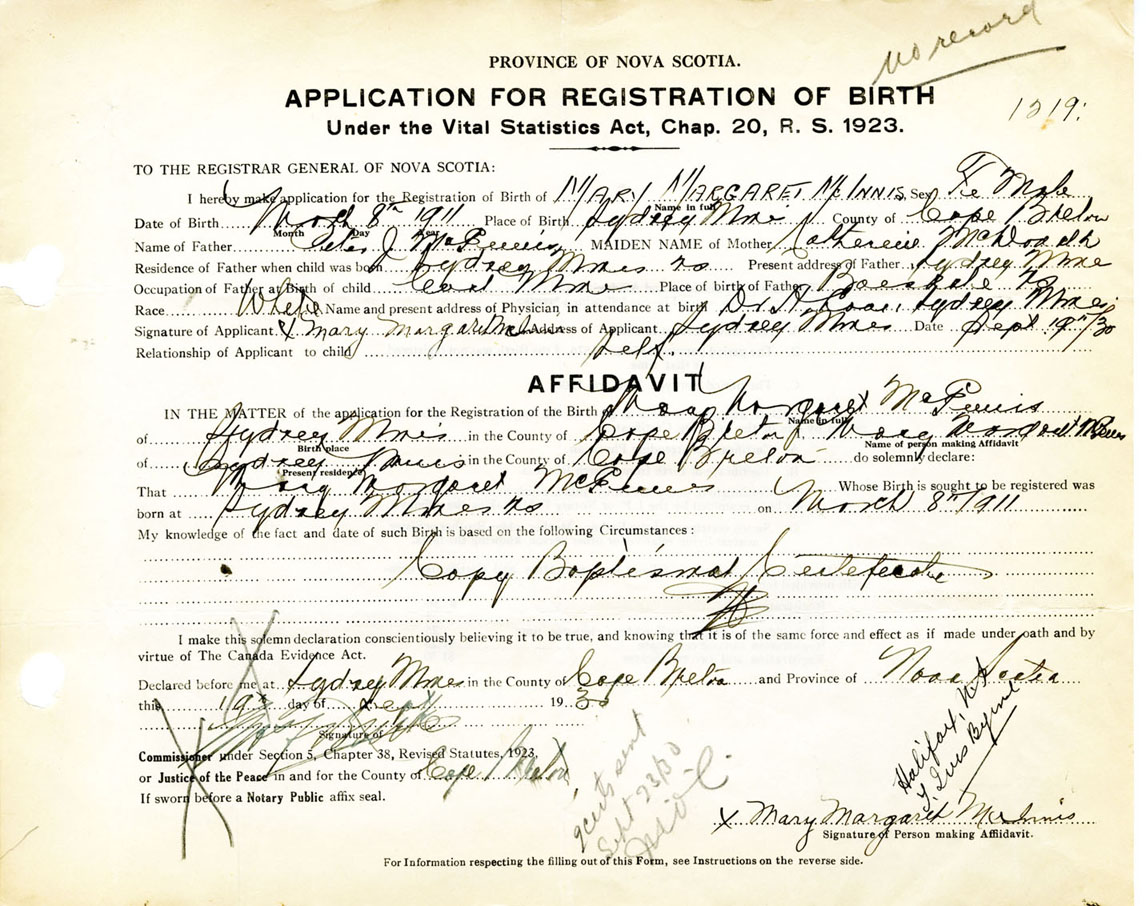 No record
PROVINCE OF NOVA SCOTIA.
APPLICATION FOR REGISTRATION OF BIRTH
1219.
Under the Vital Statistics Act, Chap. 20, R. S. 1923.
TO THE REGISTRAR GENERAL OF NOVA SCOTIA:
I hereby make application for the Registration of Birth of MARY MARGARET McINNIS Sex Fe Male
Name in full
Date of Birth March 8th 1911 Place of Birth Sydney Mine County of Cape Breton
Month Day Year
Name of Father Peter J McInnis MAIDEN NAME of Mother Catherine McDonald
Residence of Father when child was born Sydney Mines NS Present address of Father Sydney Mine
Occupation of Father at Birth of child Coal Mine Place of birth of Father
Race White Name and present address of Physician in attendance at birth Dr. Sydney Mines
Signature of Applicant X Mary Margaret McInnis Address of Applicant Sydney Mines Date Sept 19th/30
Relationship of Applicant to child Self.
AFFIDAVIT
IN THE MATTER of the application for the Registration of the Birth Mary Margaret McInnis
Name in full
of Sydney Mines in the County of Cape Breton Mary Margaret McInnis
Birth place Name of person making Affidavit
of Sydney Mines in the County of Cape Breton do solemnly declare:
Present residence
That Mary Margaret McInnis Whose Birth is sought to be registered was
born at Sydney Mines NS on March 8th 1911
My knowledge of the fact and date of such Birth is based on the following Circumstances:
Copy Baptismal Certificate
I make this solemn declaration conscientiously believing it to be true, and knowing that it is of the same force and effect as if made under oath and by
virtue of The Canada Evidence Act.
Declared before me at Sydney Mines in the County of Cape Breton and Province of Nova Scotia
this 19th day of Sept 1930
Signature of
Commissioner under Section 5, Chapter 38, Revised Statutes, 1923,
or Justice of the Peace in and for the County of Cape Breton
If sworn before a Notary Public affix seal.
certs sent
Sept 23/30
Halifax, NS
X Mary Margaret McInnis
Signature of Person making Affidavit.
For Information respecting the filling out of this Form, see Instructions on the reverse side.